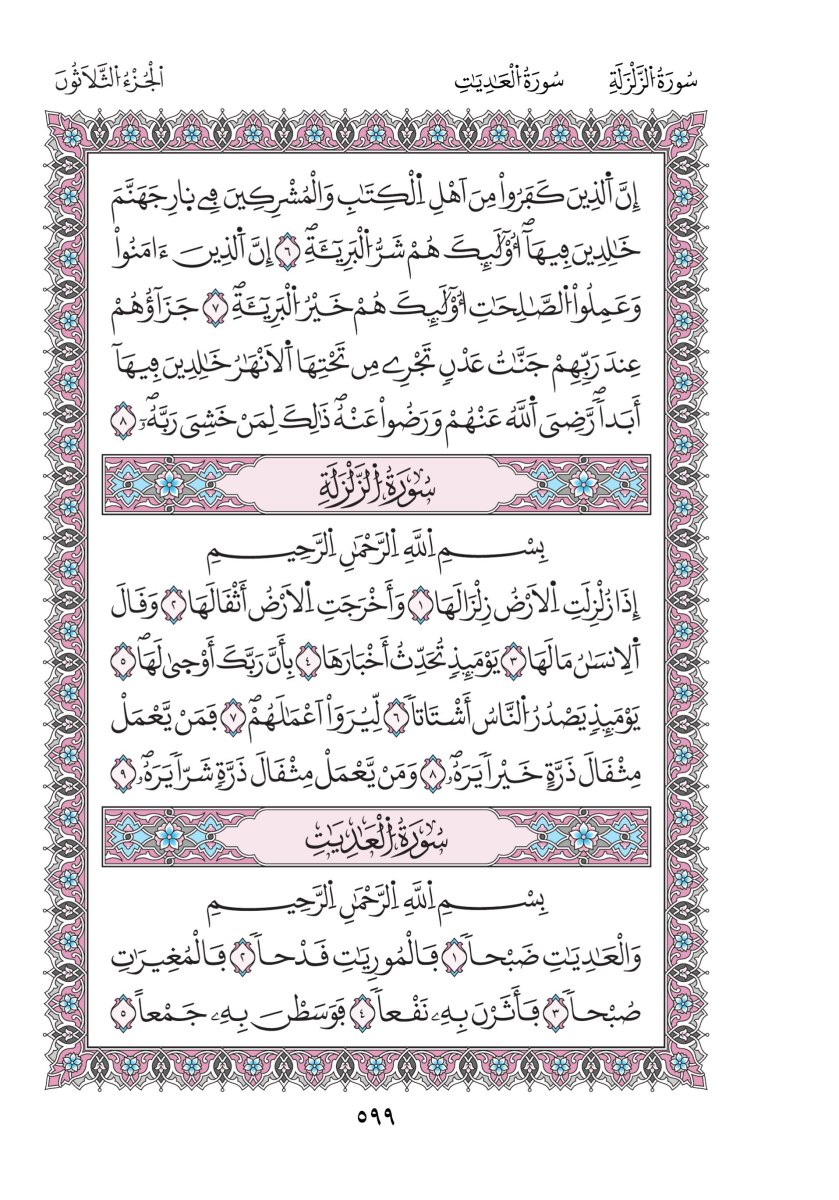 سُورَةُ اُ۬لزَّلْزَلَةِ سُورَةُ اُ۬لْعَٰدِيَٰتِ اَ۬لْجُزْءُ اُ۬لثَّلَاثُونَ
إِنَّ اَ۬لذِينَ كَفَرُواْ مِنَ اَهْلِ اِ۬لْكِتَٰبِ وَالْمُشْرِكِينَ فِے ن۪ارِ جَهَنَّمَ
خَٰلِدِينَ فِيهَآۖ أُوْلَٰٓئِكَ هُمْ شَرُّ اُ۬لْبَرِيٓـَٔةِۖ ٦ إِنَّ اَ۬لذِينَ ءَامَنُواْ
وَعَمِلُواْ اُ۬لصَّٰلِحَٰتِ أُوْلَٰٓئِكَ هُمْ خَيْرُ اُ۬لْبَرِيٓـَٔةِۖ ٧ جَزَآؤُهُمْ
عِندَ رَبِّهِمْ جَنَّٰتُ عَدْنٖ تَجْرِے مِن تَحْتِهَا اَ۬لَانْهَٰرُ خَٰلِدِينَ فِيهَآ
أَبَداٗۖ رَّضِيَ اَ۬للَّهُ عَنْهُمْ وَرَضُواْ عَنْهُۖ ذَٰلِكَ لِمَنْ خَشِيَ رَبَّهُۥۖ ٨
سُورَةُ اُ۬لزَّلْزَلَةِ
بِسْمِ اِ۬للَّهِ اِ۬لرَّحْمَٰنِ اِ۬لرَّحِيمِ
إِذَا زُلْزِلَتِ اِ۬لَارْضُ زِلْزَالَهَا ١ وَأَخْرَجَتِ اِ۬لَارْضُ أَثْقَالَهَا ٢ وَقَالَ
اَ۬لِانسَٰنُ مَا لَهَا ٣ يَوْمَئِذٖ تُحَدِّثُ أَخْبَارَهَا ٤ بِأَنَّ رَبَّكَ أَوْح۪يٰ لَهَاۖ ٥
يَوْمَئِذٖ يَصْدُرُ اُ۬لنَّاسُ أَشْتَاتاٗ ٦ لِّيُرَوَاْ اَعْمَٰلَهُمْۖ ٧ فَمَنْ يَّعْمَلْ
مِثْقَالَ ذَرَّةٍ خَيْراٗ يَرَهُۥۖ ٨ وَمَنْ يَّعْمَلْ مِثْقَالَ ذَرَّةٖ شَرّاٗ يَرَهُۥۖ ٩
سُورَةُ اُ۬لْعَٰدِيَٰتِ
بِسْمِ اِ۬للَّهِ اِ۬لرَّحْمَٰنِ اِ۬لرَّحِيمِ
وَالْعَٰدِيَٰتِ ضَبْحاٗ ١ فَالْمُورِيَٰتِ قَدْحاٗ ٢ فَالْمُغِيرَٰتِ
صُبْحاٗ ٣ فَأَثَرْنَ بِهِۦ نَقْعاٗ ٤ فَوَسَطْنَ بِهِۦ جَمْعاً ٥
٥٩٩